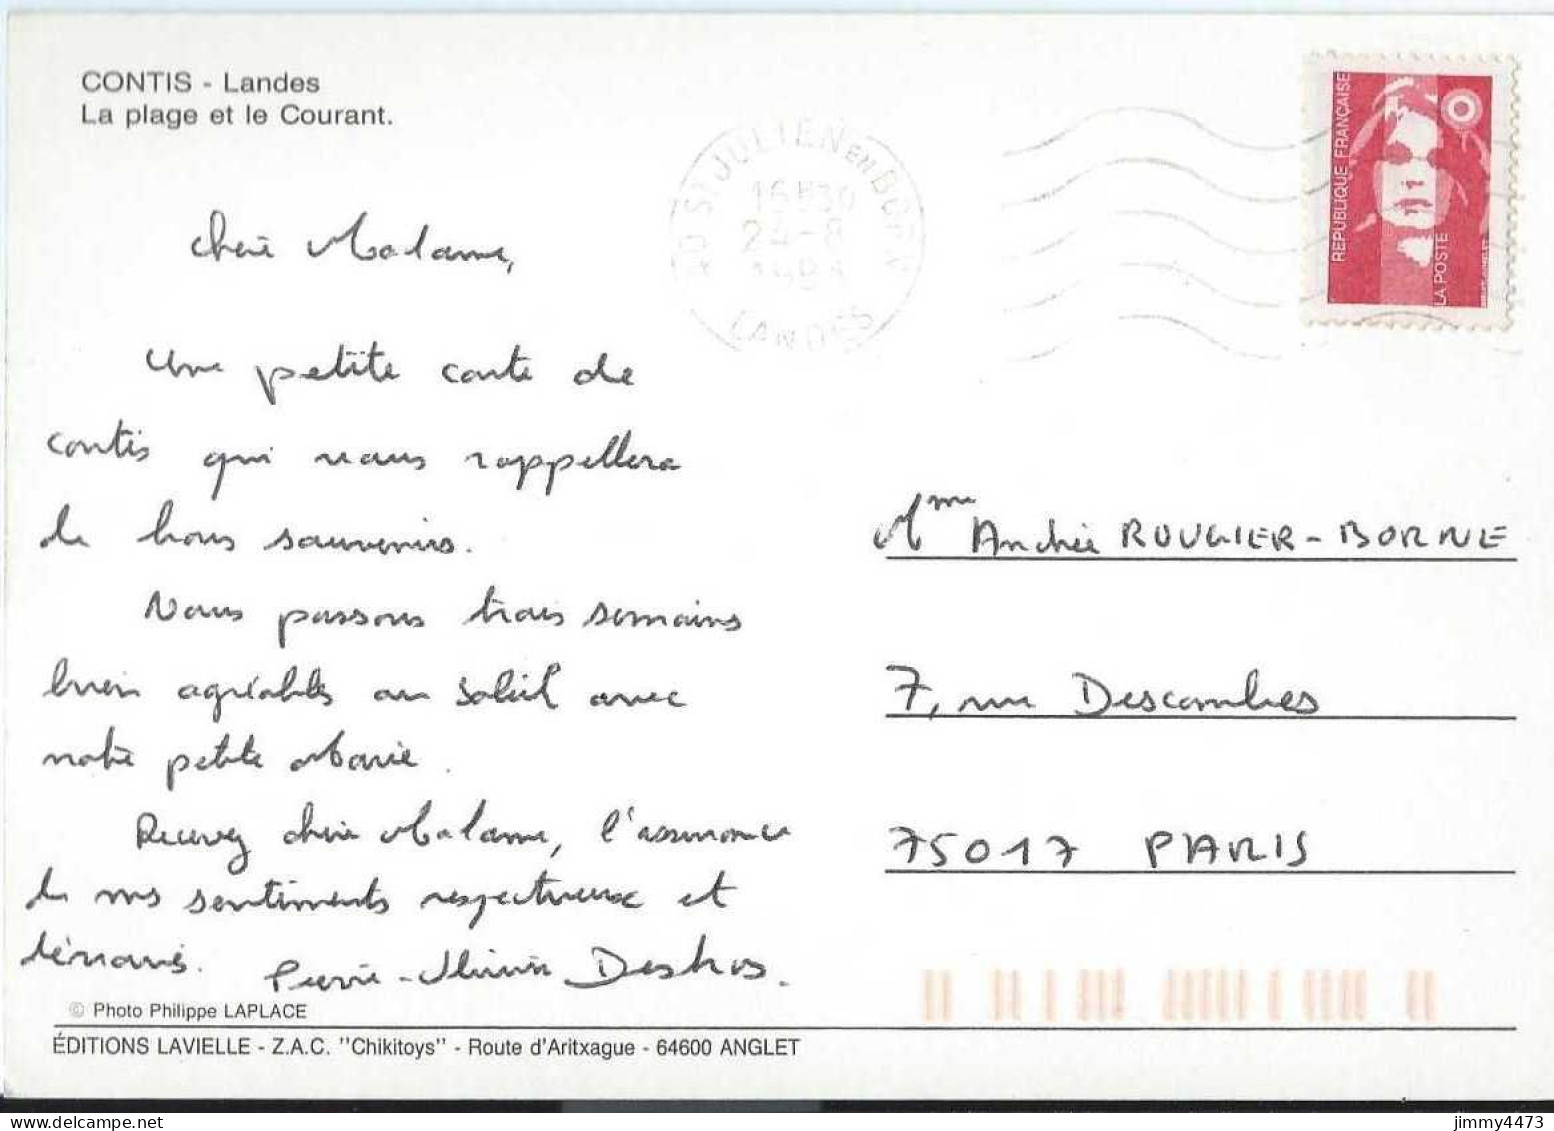 CONTIS - Landes
La plage et le Courant.
40 ST JULIEN EN BORN
16H30
24-8
LANDES
REPUBLIQUE FRANÇAISE
LA POSTE
Chère Madame,
Une petite carte de
Contis qui nous rappellera
de bons souvenirs.
Nous passons trois semaines
bien agréables au soleil avec
notre petite Marie.
Recevez chère Madame, l'assurance
de mes sentiments respectueux et
Pierre-Olivier
Mme Andrée ROUGIER-BORNE
7, rue Descombes
75017 PARIS
© Photo Philippe LAPLACE
ÉDITIONS LAVIELLE - Z.A.C. "Chikitoys" - Route d'Aritxague - 64600 ANGLET
jimmy4473